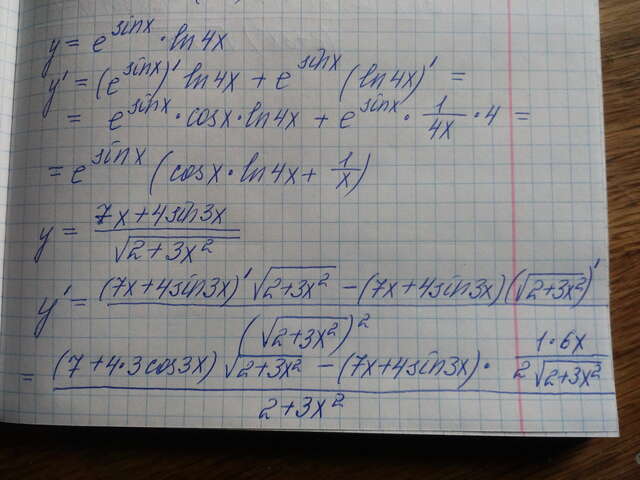 y = e^{sinx} · ln4x
y' = (e^{sinx})' ln4x + e^{sinx} (ln4x)' =
= e^{sinx} · cosx · ln4x + e^{sinx} · \frac{1}{4x} · 4 =
= e^{sinx} (cosx · ln4x + \frac{1}{x})
y = \frac{7x+4sin3x}{\sqrt{2+3x^2}}
y' = \frac{(7x+4sin3x)' \sqrt{2+3x^2} - (7x+4sin3x)(\sqrt{2+3x^2})'}{(\sqrt{2+3x^2})^2}
= \frac{(7+4·3cos3x) \sqrt{2+3x^2} - (7x+4sin3x) · \frac{1·6x}{2\sqrt{2+3x^2}}}{2+3x^2}